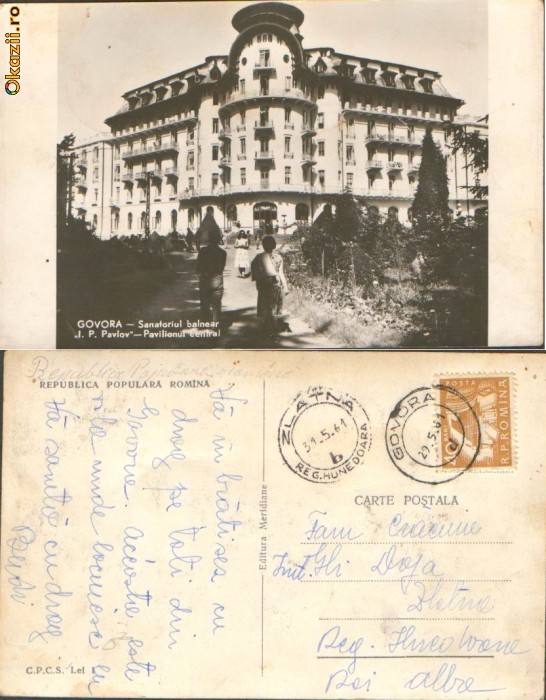 Okazii.ro
GOVORA — Sanatoriul balnear
„I. P. Pavlov"—Pavilionul central
Republica Populara
REPUBLICA POPULARĂ ROMÎNĂ
Vă îmbrățișez cu
drag pe toți din
Govora aceasta este
vila unde locuiesc eu
Vă sărută cu drag
Editura Meridiane
C.P.C.S. Lei
ZLATNA
31.5.61
b
REG. HUNEDOARA
GOVORA
29.5.61
d
POSTA
R.P. ROMINA
CARTE POȘTALĂ
Fam Crăciune
Gh Doja
Zlatna
Reg. Hunedoara
Roi Alba